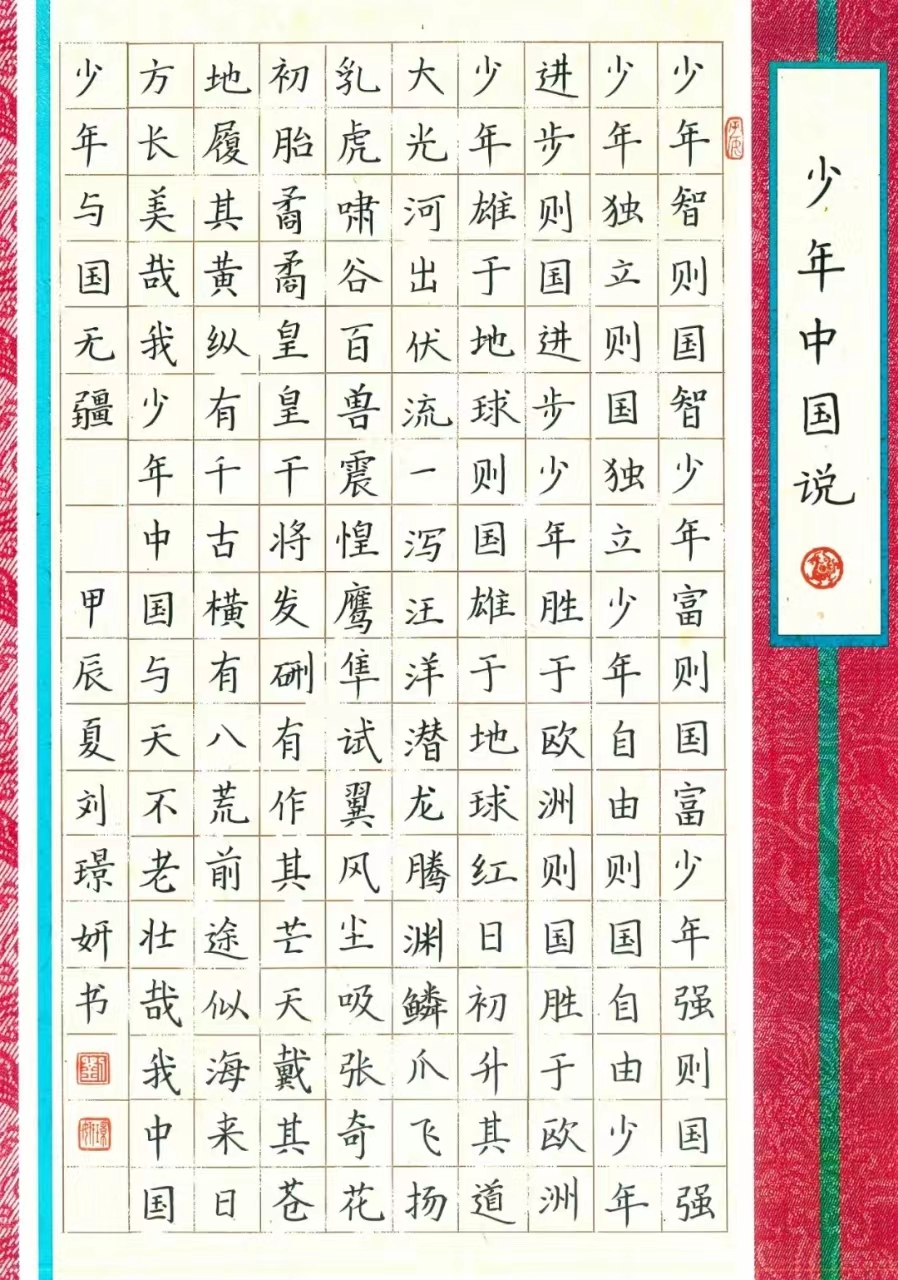 少年中国说
少年智则国智少年富则国富少年强则国强
少年独立则国独立少年自由则国自由少年
进步则国进步少年胜于欧洲则国胜于欧洲
少年雄于地球则国雄于地球红日初升其道
大光河出伏流一泻汪洋潜龙腾渊鳞爪飞扬
乳虎啸谷百兽震惶鹰隼试翼风尘吸张奇花
初胎矞矞皇皇干将发硎有作其芒天戴其苍
地履其黄纵有千古横有八荒前途似海来日
方长美哉我少年中国与天不老壮哉我中国
少年与国无疆 甲辰夏刘璟妍书